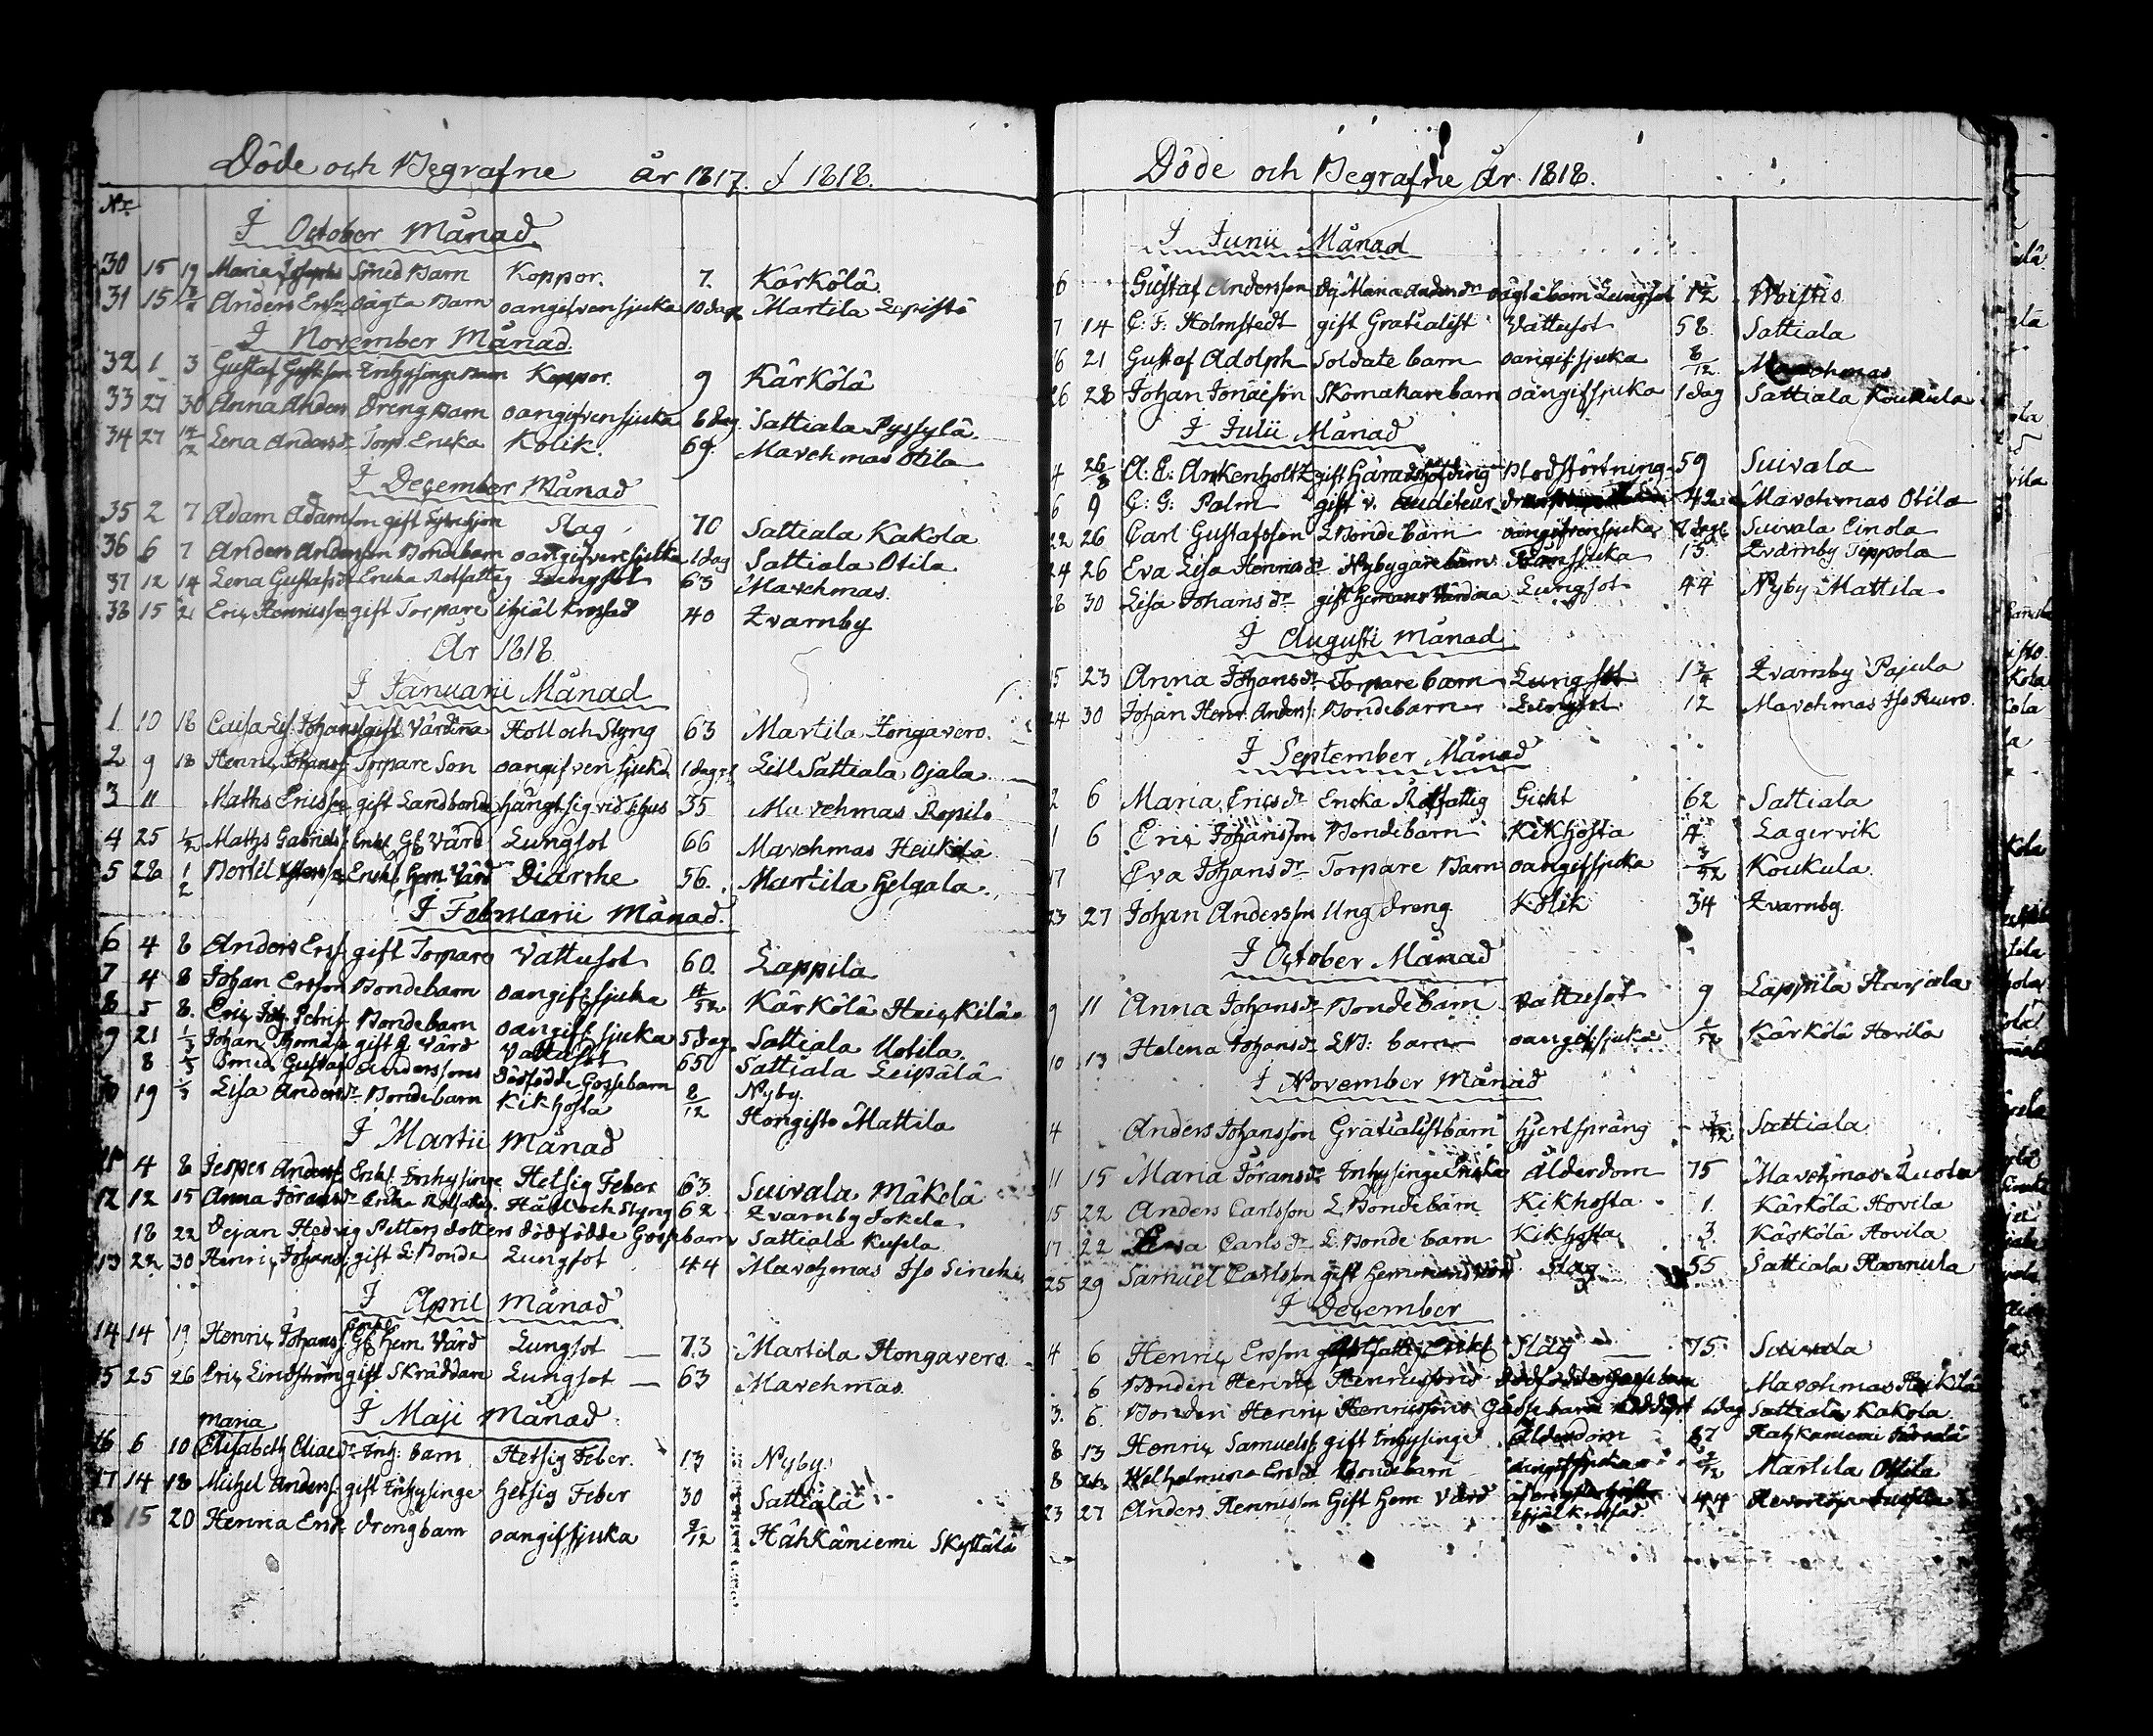 Döde och Begrafne år 1817. & 1818.
No
I October Månad
30 15 19 Maria Josephs Smed Barn Koppor. 7. Kärkölä
31 15 Anders Ersn oägta Barn oangifven sjuka 10 dag Martila Lepistö
I November Månad.
32 1 3 Gustaf Inhysinge Barn Koppor. 9 Kärkölä
33 27 30 Anna Anders Dreng Barn oangifven sjuka 6 dag. Sattiala Pyssylä
34 27 Lena Andersdr Torp. Encka Kolik. 69. Mavehmas Otila
I December Månad
35 2 7 Adam Adamsson gift Slag 70 Sattiala Kakola
36 6 7 Anders Andersson Bondebarn oangifven sjukka 1 dag Sattiala Otila
37 12 14 Lena Gustafsdr Encka Rotfattig Lungsot 63 Mavehmas.
38 15 21 Eric Henricsson gift Torpare ihjäl krossad 40 Zvarnby
År 1818
I Januarii Månad
1 10 18 Caisa Lis. Johans gift Värdina Håll och Styng 63 Martila Hongavero.
2 9 18 Henric Johans Torpare Son oangifven sjuka 1 dag Lill Sattiala Ojala
3 11 Maths Ericsson gift Landbonde hängt sig vid Fyllhus 35 Mavehmas Ropilo
4 25 1/2 Mathys Gabriels Enkl. Gl. Värd Lungsot 66 Mavehmas Heikilä
5 28 1/2 Bertil Enkl. Hem. Värd Diarrhe 56. Martila Helgala
I Februarii Månad.
6 4 8 Anders Ers. gift Torpare Vattusot 60. Lappila
7 4 8 Johan Ersson Bondebarn oangif. sjuka 4/52 Kärkölä Heickilä
8 5 8. Eric Joh. Petri Bondebarn oangif. sjuka 5 dag. Sattiala Uotila.
9 21 1/3 Johan Thomass gift g. Värd Vattusot 65 Sattiala Leipälä
8 1/3 Smed Gustaf Anderssons dödfödde Gossebarn Nyby
10 19 1/3 Lisa Andersdr Bondebarn Kikhosta 8/12 Hongisto Mattila
I Martii Månad
11 4 8 Jesper Anders Enkl. Inhysinge Hetsig Feber 63. Suivala Mäkelä
12 12 15 Anna Jöransdr Encka Rotfattig. Håll och Styng 62 Zvarnby Jokela
18 22 Pejan Hedvig Petters dotters dödfödde Gossebarn Sattiala Kusela
13 22 30 Henric Johans gift L. Bonde Lungsot 44 Mavehmas Iso Sincke
I April Månad
14 14 19 Henric Johans Enkl. Gl. Hem. Värd Lungsot 73 Martila Hongavero
15 25 26 Eric Lindström gift Skräddare Lungsot 63 Mavehmas.
I Maji Månad
Maria
16 6 10 Elisabeth Eliaedr Inh: barn Hetsig Feber. 13 Nyby.
17 14 18 Michel Anders. gift Inhysinge Hetsig Feber 30 Sattiala
18 15 20 Henna Ersdr Drengbarn oangif sjuka 9/12 Hähkäniemi Skyttälä
Döde och Begrafne År 1818.
I Junii Månad
6 Gustaf Andersson Pig. Maria Andersdr oägta barn Lungsot Woistis
7 14 C. F. Holmstedt gift Gratialist Vattusot 58. Sattiala
16 21 Gustaf Adolph Soldate barn oangif. sjuka 8/12 Mavehmas
26 28 Johan Jonaesson Skomakare barn oangif sjuka 1 dag Sattiala Koukula
I Julii Månad
4 26/8 A. E. Ankenholtz gift Häradshöfding Blodstörtning 59 Suivala
6 9 C. G. Palm gift v. Auditeur 42 Mavehmas Otila
22 26 Carl Gustafsson L Bonde barn oangifven sjuka 7 dagar Suivala Einola
24 26 Eva Lisa Henricsdr Nybygare barn sjuka 15 Zvarnby Teppola
28 30 Lisa Johansdr gift Hemans Värdina Lungsot 44 Nyby Mattila
I Augusti Månad
15 23 Anna Johansdr Torpare barn Lungsot 1 3/4 Zvarnby Pajula
24 30 Johan Henr. Anders. Bondebarn Lungsot 12 Mavehmas Iso
I September Månad
2 6 Maria Ericsdr Encka Rotfattig Gickt 62 Sattiala
1 6 Eric Johansson Bondebarn Kikhosta 4 Lagervik
17 Eva Johansdr Torpare Barn oangif sjuka 3/52 Koukula
23 27 Johan Andersson Ung dreng Kolik 34 Zvarnby.
I October Månad
9 11 Anna Johansdr Bondebarn Vattusot 9 Lappila Harjala
10 13 Helena Johansdr L B: barn oangif sjuka Kärkölä Hovila
I November Månad
4 Anders Johansson Gratialistbarn Hjertsprång Sattiala
11 15 Maria Jöransdr Inhysinge Encka Ålderdom 75 Mavehmas Ruola
15 22 Anders Carlsson L. Bonde barn Kikhosta 1. Kärkölä Hovila
17 22 Carlsdr L. Bonde barn Kikhosta 3. Kärkölä Hovila
25 29 Samuel Carlsson gift Hemmans Värd Slag 55 Sattiala Hannula
I December
4 6 Henric Ersson Rotfattig Enkl Slag 75. Suivala
6 Bonden Henric Henricssons dödfödde Gossebarn Mavehmas Heikilä
3. 6. Bonden Henric Henricssons Gossebarn nöddöpt 1 dag Sattiala Kakola
8 13 Henric Samuels gift Inhysinge Ålderdom 67 Hähkäniemi
8 26 Wilhelmina Ersdr Bondebarn oangif sjuka Martila Ottila
23 27 Anders Henricsson Gift Hem Värd ihjälkrossad. 44